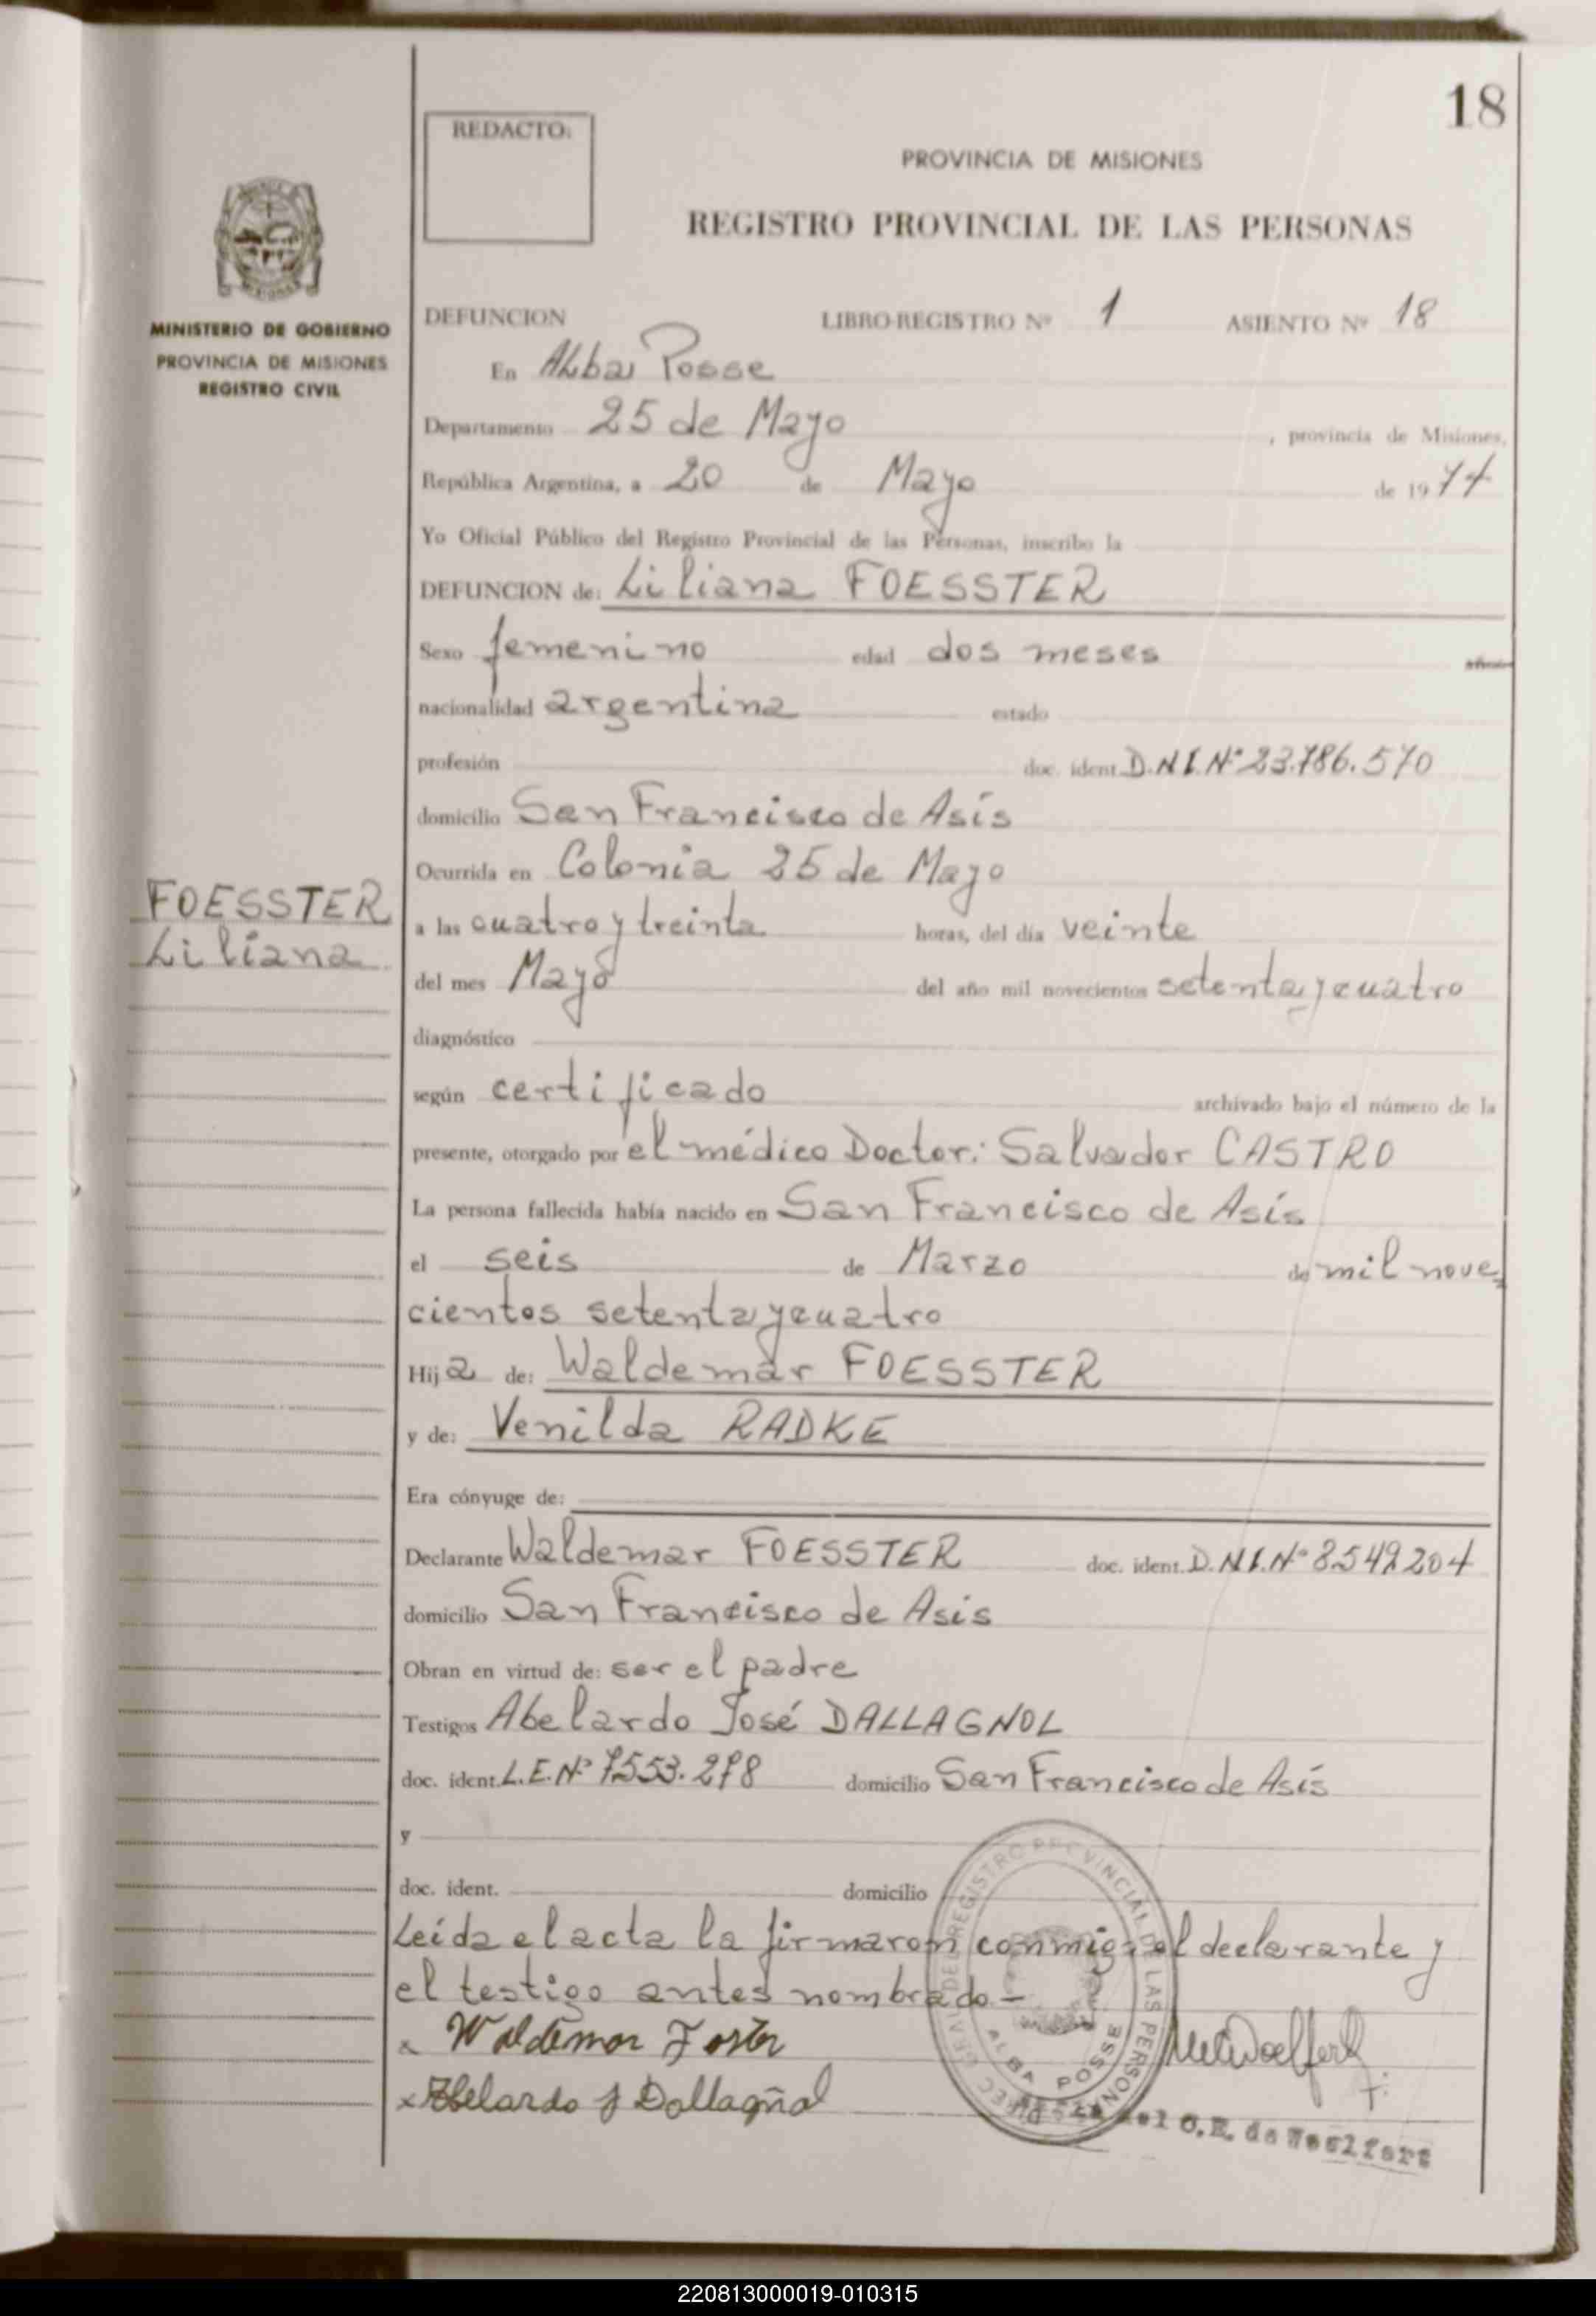 18
REDACTO:
PROVINCIA DE MISIONES
REGISTRO PROVINCIAL DE LAS PERSONAS
MINISTERIO DE GOBIERNO
PROVINCIA DE MISIONES
REGISTRO CIVIL
DEFUNCION LIBRO-REGISTRO Nº 1 ASIENTO Nº 18
En Alba Posse
Departamento 25 de Mayo , provincia de Misiones,
República Argentina, a 20 de Mayo de 1974
Yo Oficial Público del Registro Provincial de las Personas, inscribo la
DEFUNCION de: Liliana FOESSTER
Sexo femenino edad dos meses años
nacionalidad argentina estado
profesión doc. ident. D.N.I. Nº 23.786.570
domicilio San Francisco de Asís
Ocurrida en Colonia 25 de Mayo
FOESSTER
Liliana
a las cuatro y treinta horas, del día veinte
del mes Mayo del año mil novecientos setenta y cuatro
diagnóstico
según certificado archivado bajo el número de la
presente, otorgado por el médico Doctor: Salvador CASTRO
La persona fallecida había nacido en San Francisco de Asís
el seis de Marzo de mil nove=
cientos setenta y cuatro
Hija de: Waldemar FOESSTER
y de: Venilda RADKE
Era cónyuge de:
Declarante Waldemar FOESSTER doc. ident. D.N.I. Nº 8549204
domicilio San Francisco de Asís
Obran en virtud de: ser el padre
Testigos Abelardo José DALLAGNOL
doc. ident. L.E. Nº 7553.278 domicilio San Francisco de Asís
y
doc. ident. domicilio
Leída el acta la firmaron conmigo el declarante y
el testigo antes nombrado-
x Waldemar Foster
x Abelardo J Dallagñol
REGISTRO PROVINCIAL DE LAS PERSONAS
ALBA POSSE
del C.E. de Woelfert
220813000019-010315